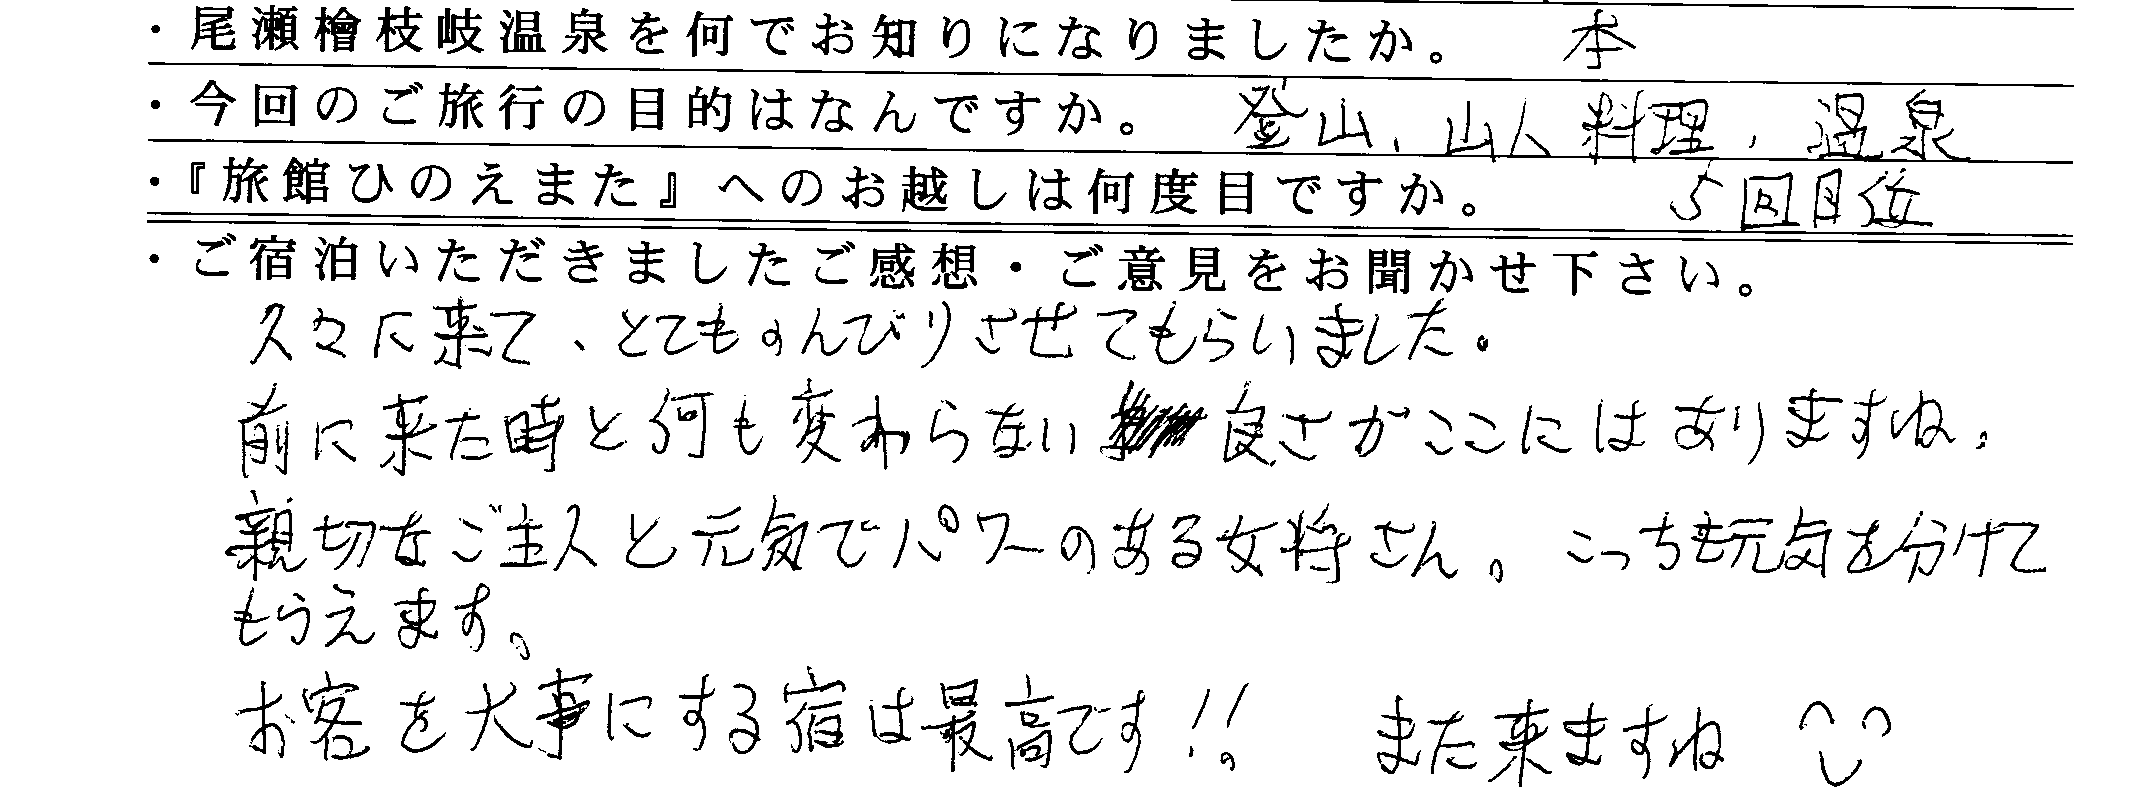 ・尾瀬檜枝岐温泉を何でお知りになりましたか。 本
・今回のご旅行の目的はなんですか。 登山、山人料理、温泉
・『旅館ひのえまた』へのお越しは何度目ですか。 5回目位
・ご宿泊いただきましたご感想・ご意見をお聞かせ下さい。
久々に来て、とてものんびりさせてもらいました。
前に来た時と何も変わらない良さがここにはありますね。
親切なご主人と元気でパワーのある女将さん。こっちも元気を分けて
もらえます。
お客を大事にする宿は最高です!!。 また来ますね